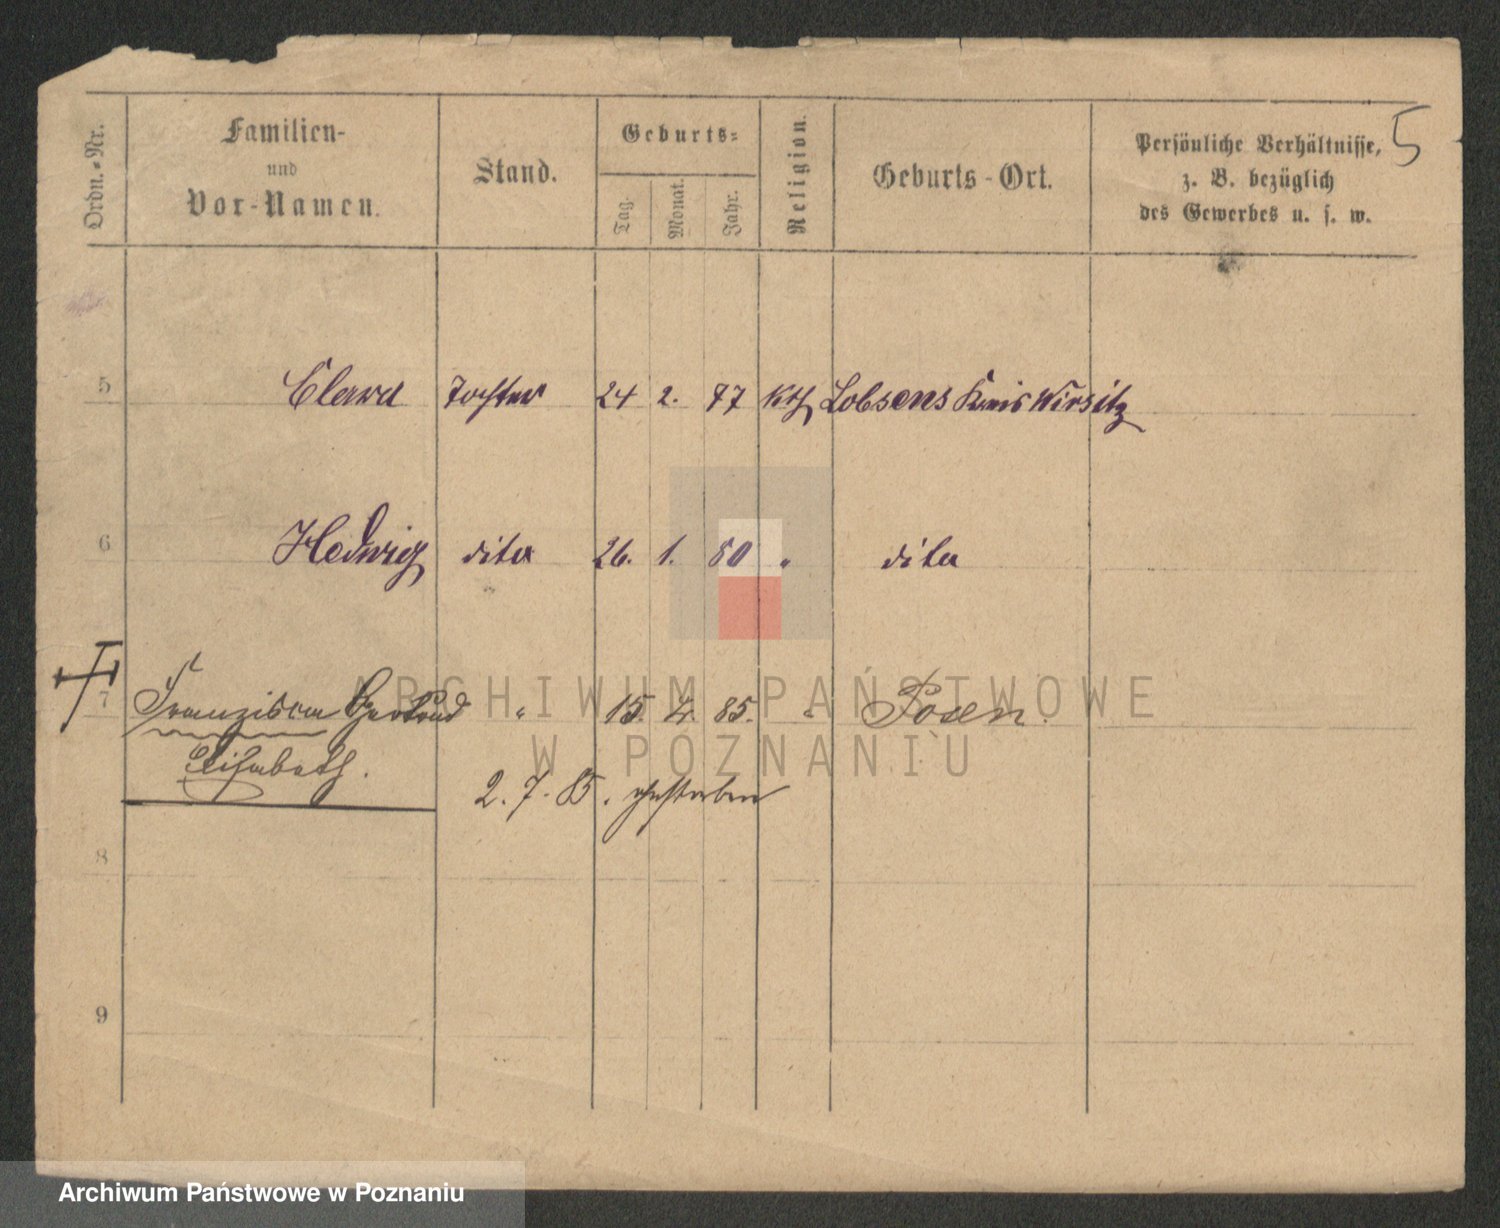 5
Ordn.-Nr.
Familien-
und
Vor-Namen.
Stand.
Geburts-
Tag.
Monat.
Jahr.
Religion.
Geburts-Ort.
Persönliche Verhältnisse,
z. B. bezüglich
des Gewerbes u. s. w.
5 Clara Tochter 24 2. 77 Kth Lobsens Kreis Wirsitz
6 Hedwig dito 26. 1. 80 " dito
7 Franziska Gertrud " 15. 85. " Posen.
Elisabeth.
2. 7. 85. gestorben
8
9
ARCHIWUM PAŃSTWOWE
W POZNANIU
Archiwum Państwowe w Poznaniu